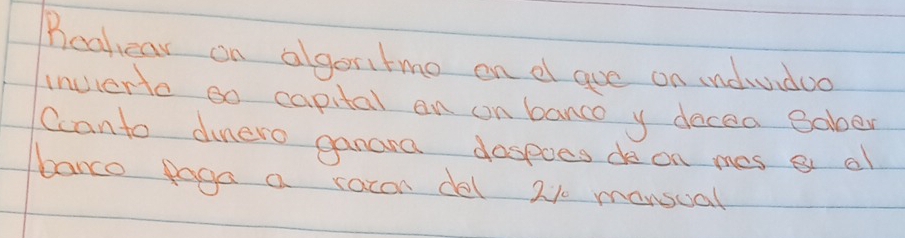 Realizar un algoritmo en el que un individuo
invierte su capital en un banco y decea saber
Cuanto dinero ganara despues de un mes si el
banco paga a razon del 2% mensual